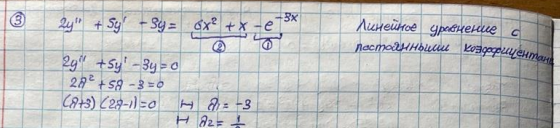 ③ 2y'' + 5y' - 3y = 6x² + x - e⁻³ˣ Линейное уравнение с
② ① постоянными коэффициентами
2y'' + 5y' - 3y = 0
2λ² + 5λ - 3 = 0
(λ+3)(2λ-1) = 0 ↦ λ₁ = -3
↦ λ₂ = 1